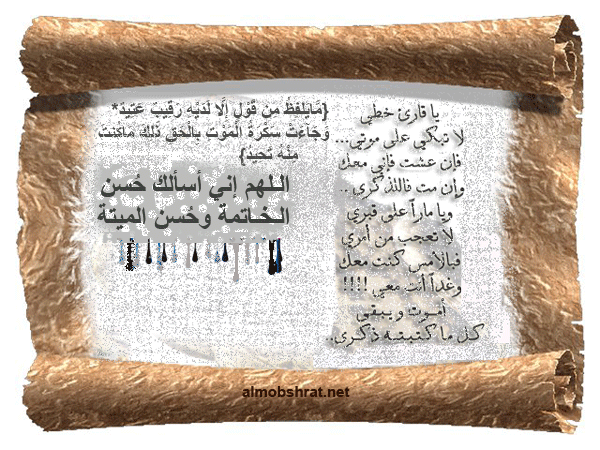 يا قارئ خطي
لا تبكي على موتي...
فإن عشت فإني معك
وإن مت فاللذكرى..
ويا ماراً على قبري
لا تعجب من أمري
فبالأمس كنت معك
وغداً أنت معي !!!!
أموت و يبقى
كل ما كتبته ذكرى..
{مَايَلْفِظُ مِن قَوْلٍ إِلَّا لَدَيْهِ رَقِيبٌ عَتِيدٌ*
وَجَاءَتْ سَكْرَةُ الْمَوْتِ بِالْحَقِّ ذَلِكَ مَاكُنتَ
مِنْهُ تَحِيدُ}
اللهم إني أسألك حُسن
الخاتمة وحُسن الميتة
almobshrat.net